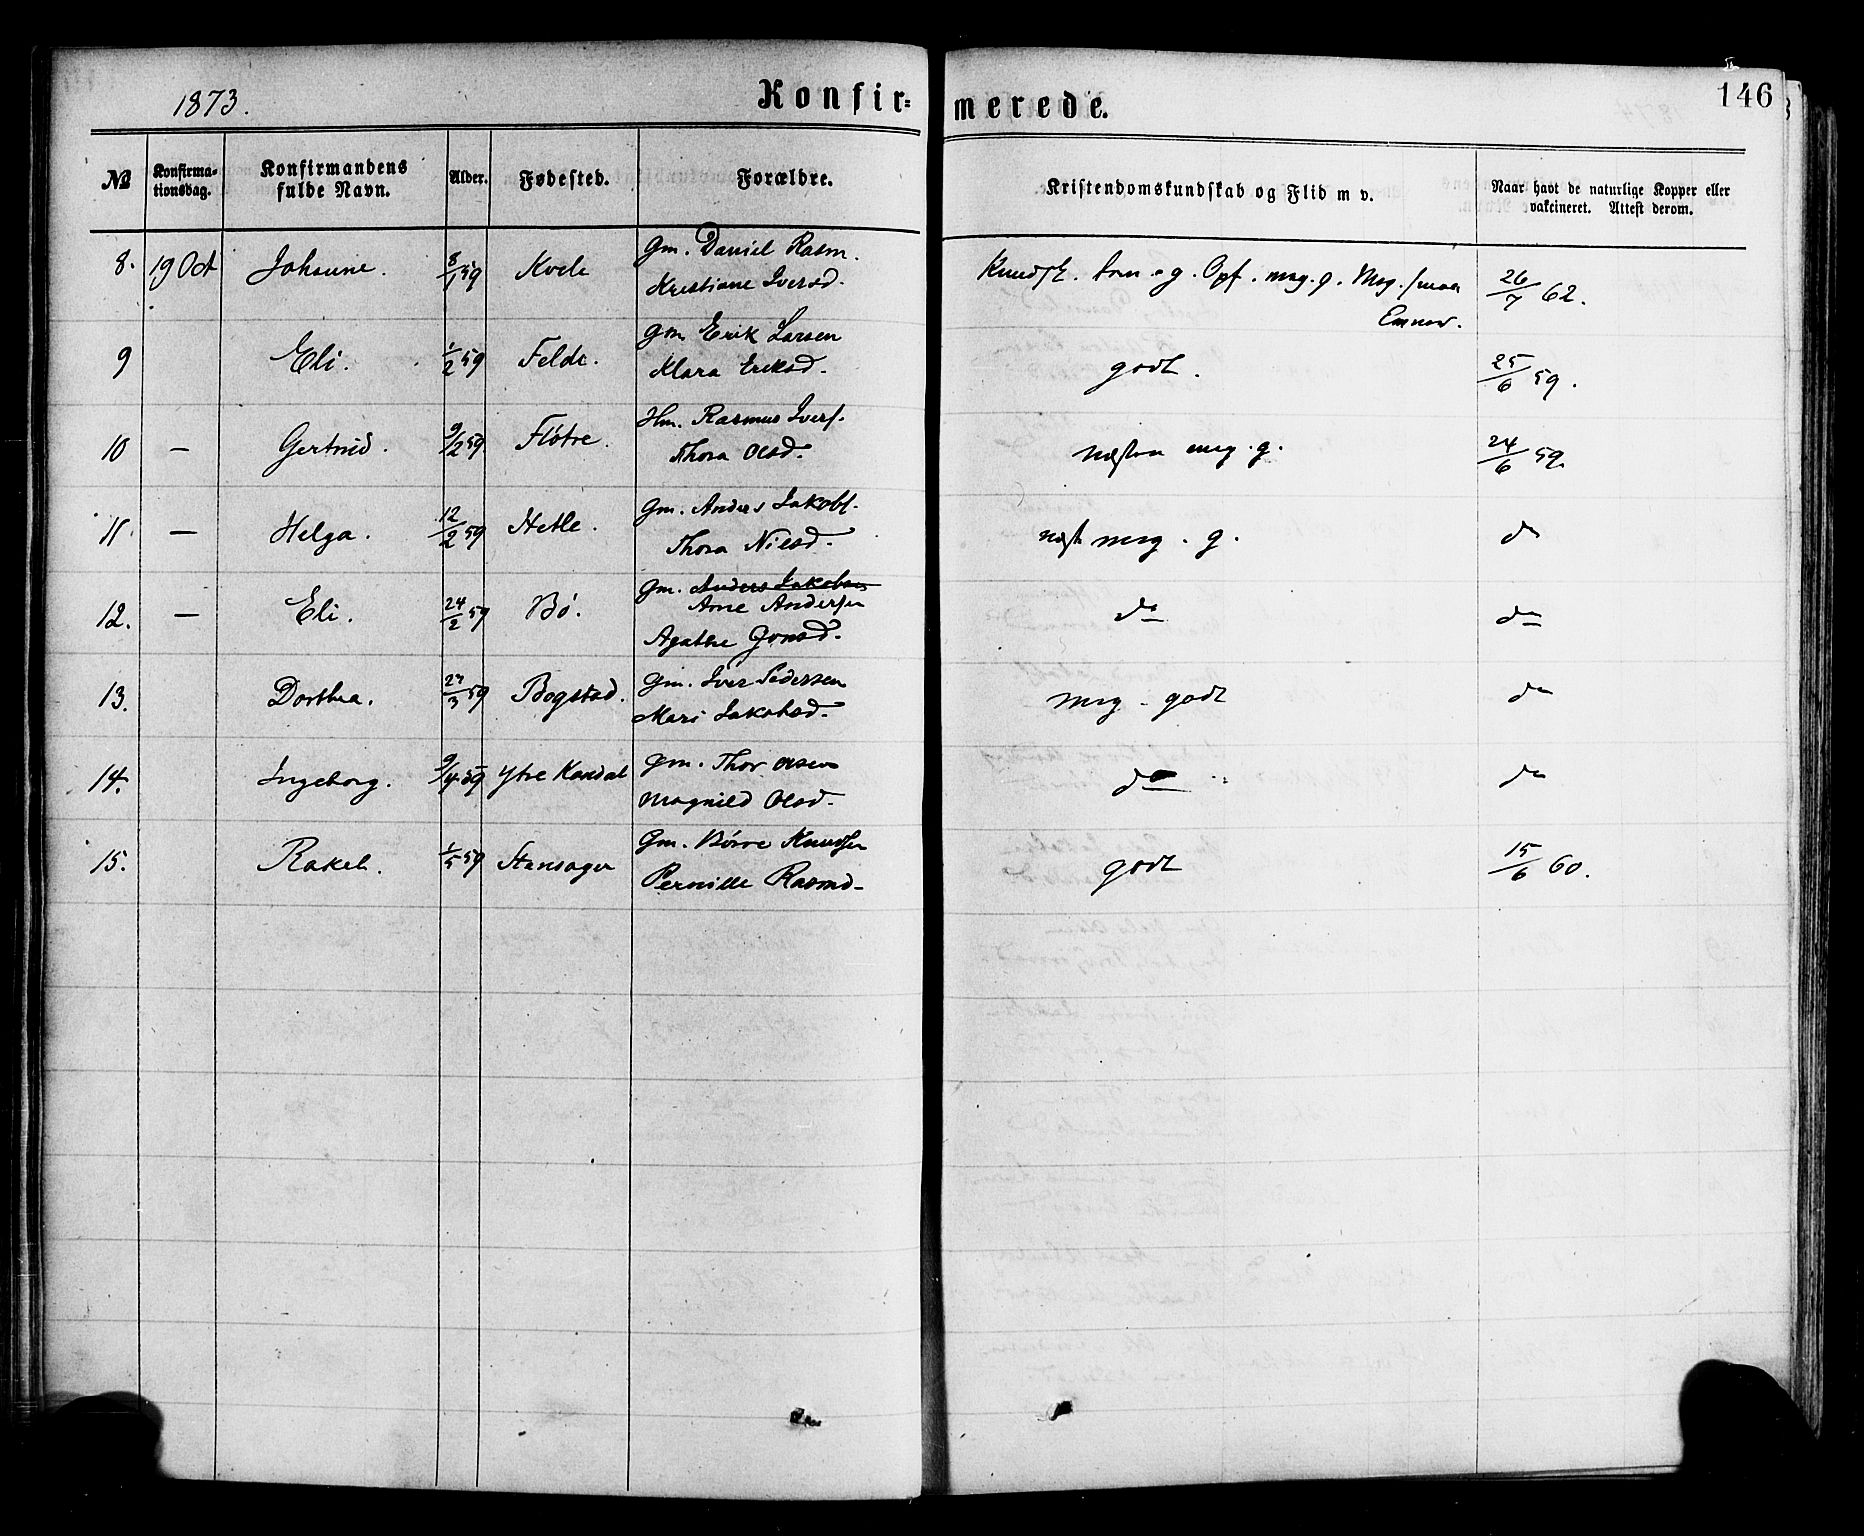 1873. Konfir= merede. 146
№ Konfirma-tionsdag. Konfirmandens fulde Navn. Alder. Fødested. Forældre. Kristendomskundskab og Flid m v. Naar havt de naturlige Kopper eller vakcineret. Attest derom.
8. 19 Oct Johanne. 8/1 59 Kvele Gm. Daniel Rasm.
Kristiane Iversd. 26/7 62.
9 Eli. 1/2 59 Felde. Gm Erik Larsen
Klara Eriksd. godt. 25/6 59.
10 — Gertrud. 9/2 59. Flötre. Hm. Rasmus Ivers.
Thora Olsd. næsten meg. g. 24/6 59.
11. — Helga. 12/2 59 Hetle. Gm. Anders Jakobs.
Thora Nilsd. næst meg. g. do
12. — Eli. 24/2 59 Bö. Gm. Anders Jakobsen
Arne Andersen
Agathe Jonsd. do do
13. Dorthea. 27/3 59 Bogstad. Gm. Iver Pedersen
Mari Jakobsd. meg. godt do
14. Ingeborg. 9/4 59 Ytre Kandal Gm. Thor Olsen
Magnild Olsd. do do
15. Rakel. 1/5 59 Gm. Börre Knudsen
Pernille Rasmd. godt 15/6 60.